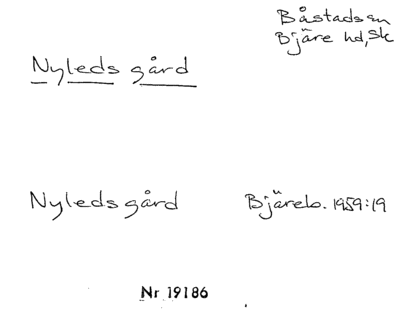 Båstads sn
Bjäre hd, Sk
Nyleds gård
Nyleds gård Bjäreb. 1959:19
Nr 19186